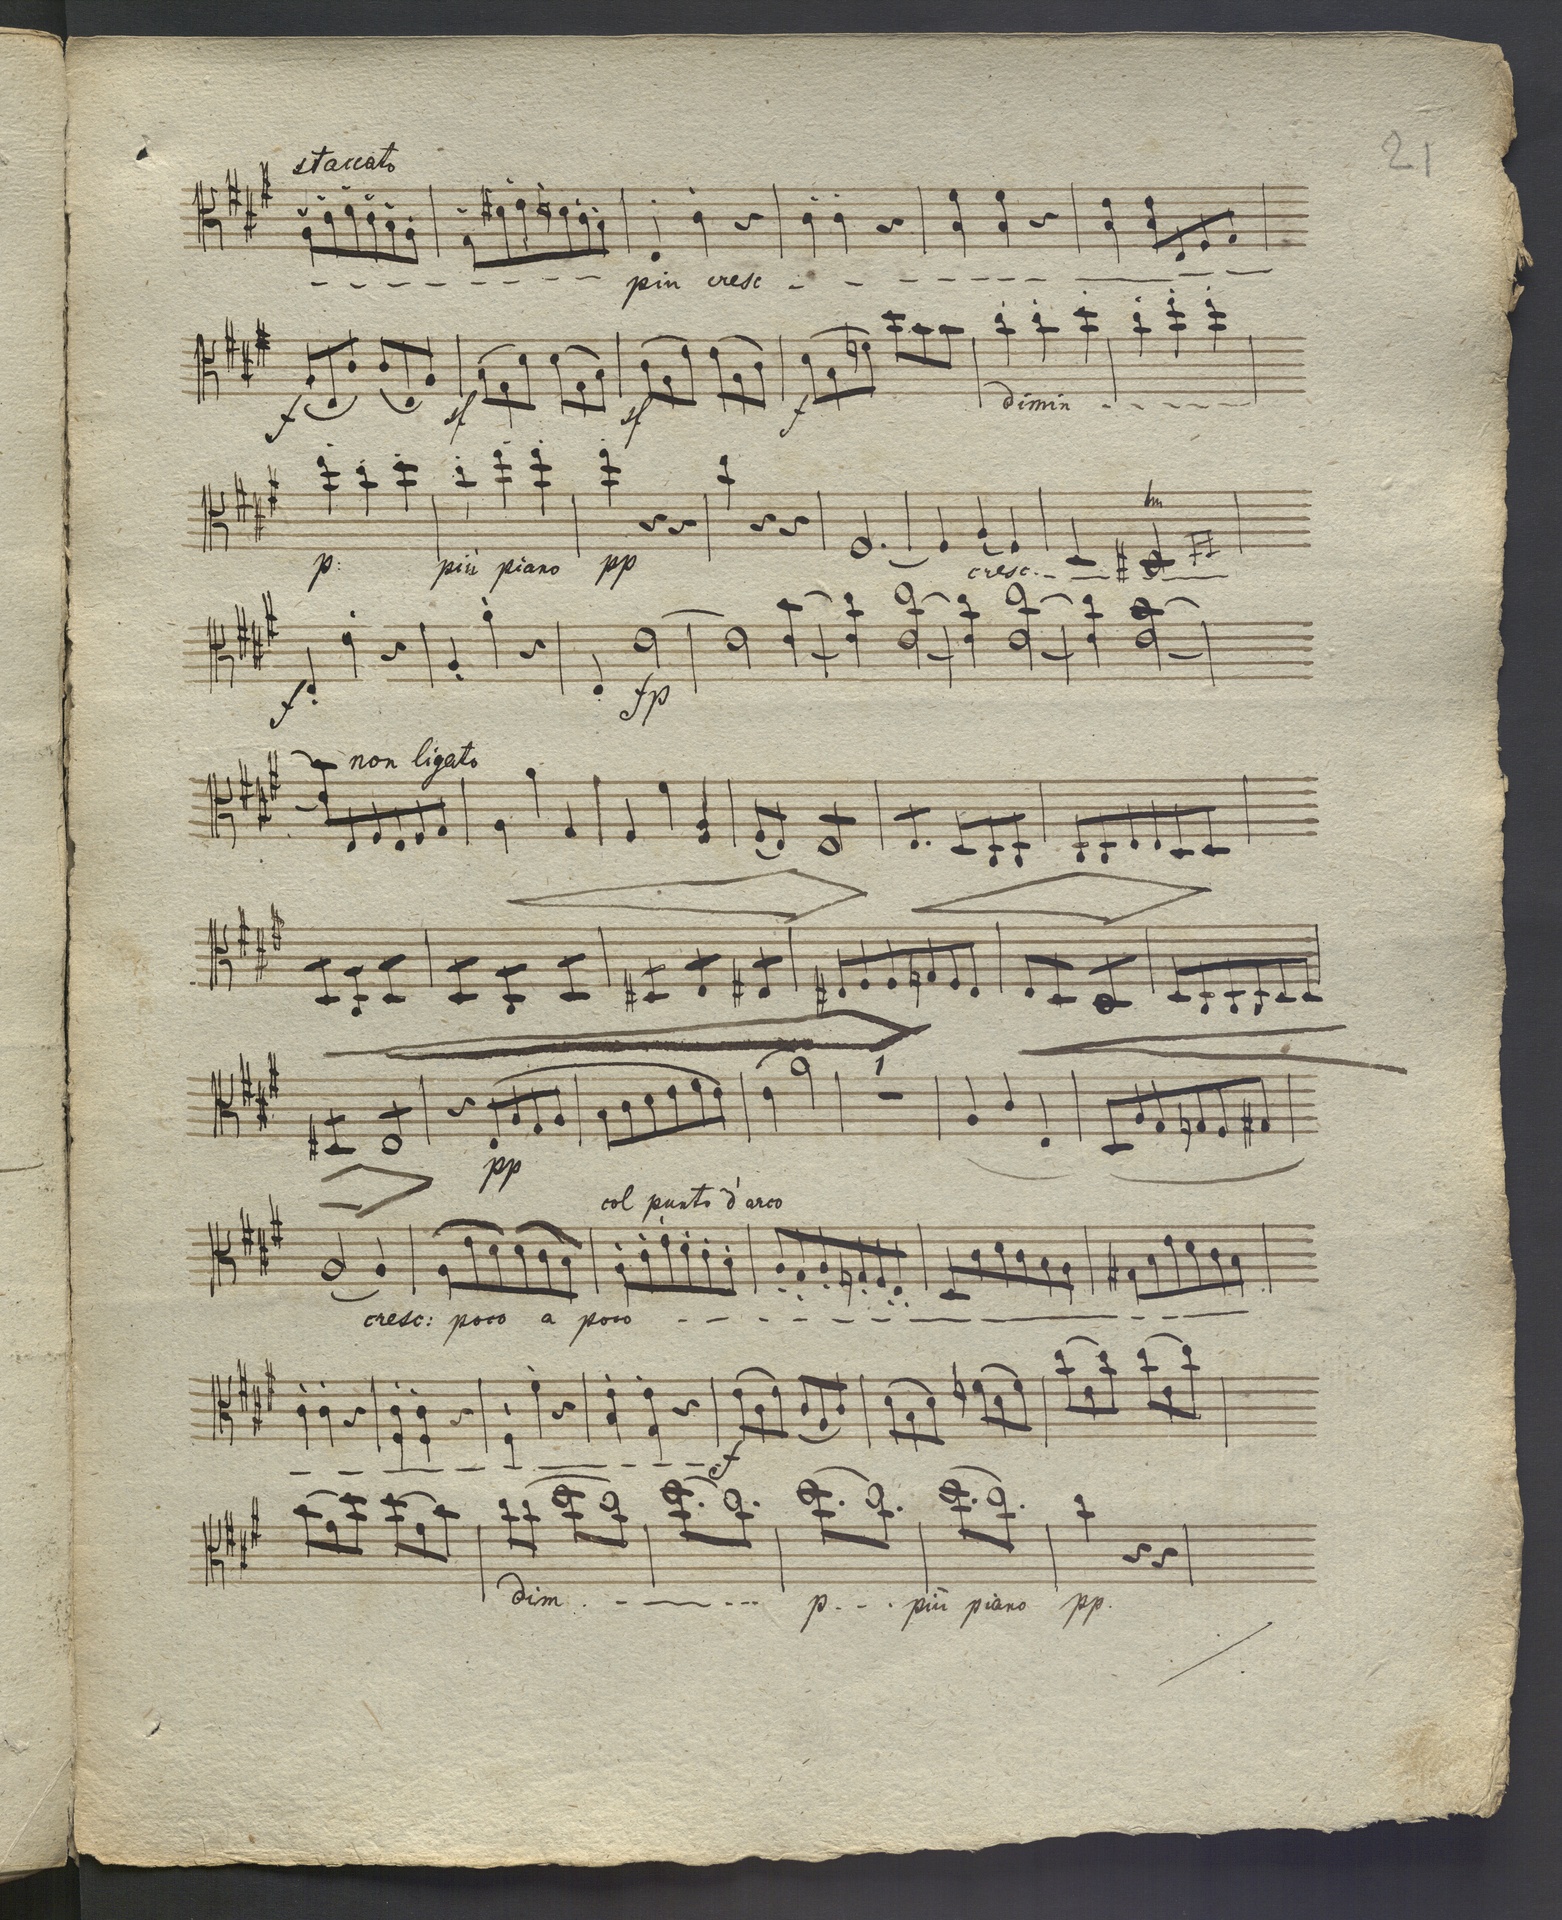 21
staccato
piu cresc
f sf sf f dimin
p: più piano pp
cresc.
f fp
non ligato
1
pp
col punto d'arco
cresc: poco a poco
f
dim. p. più piano pp.